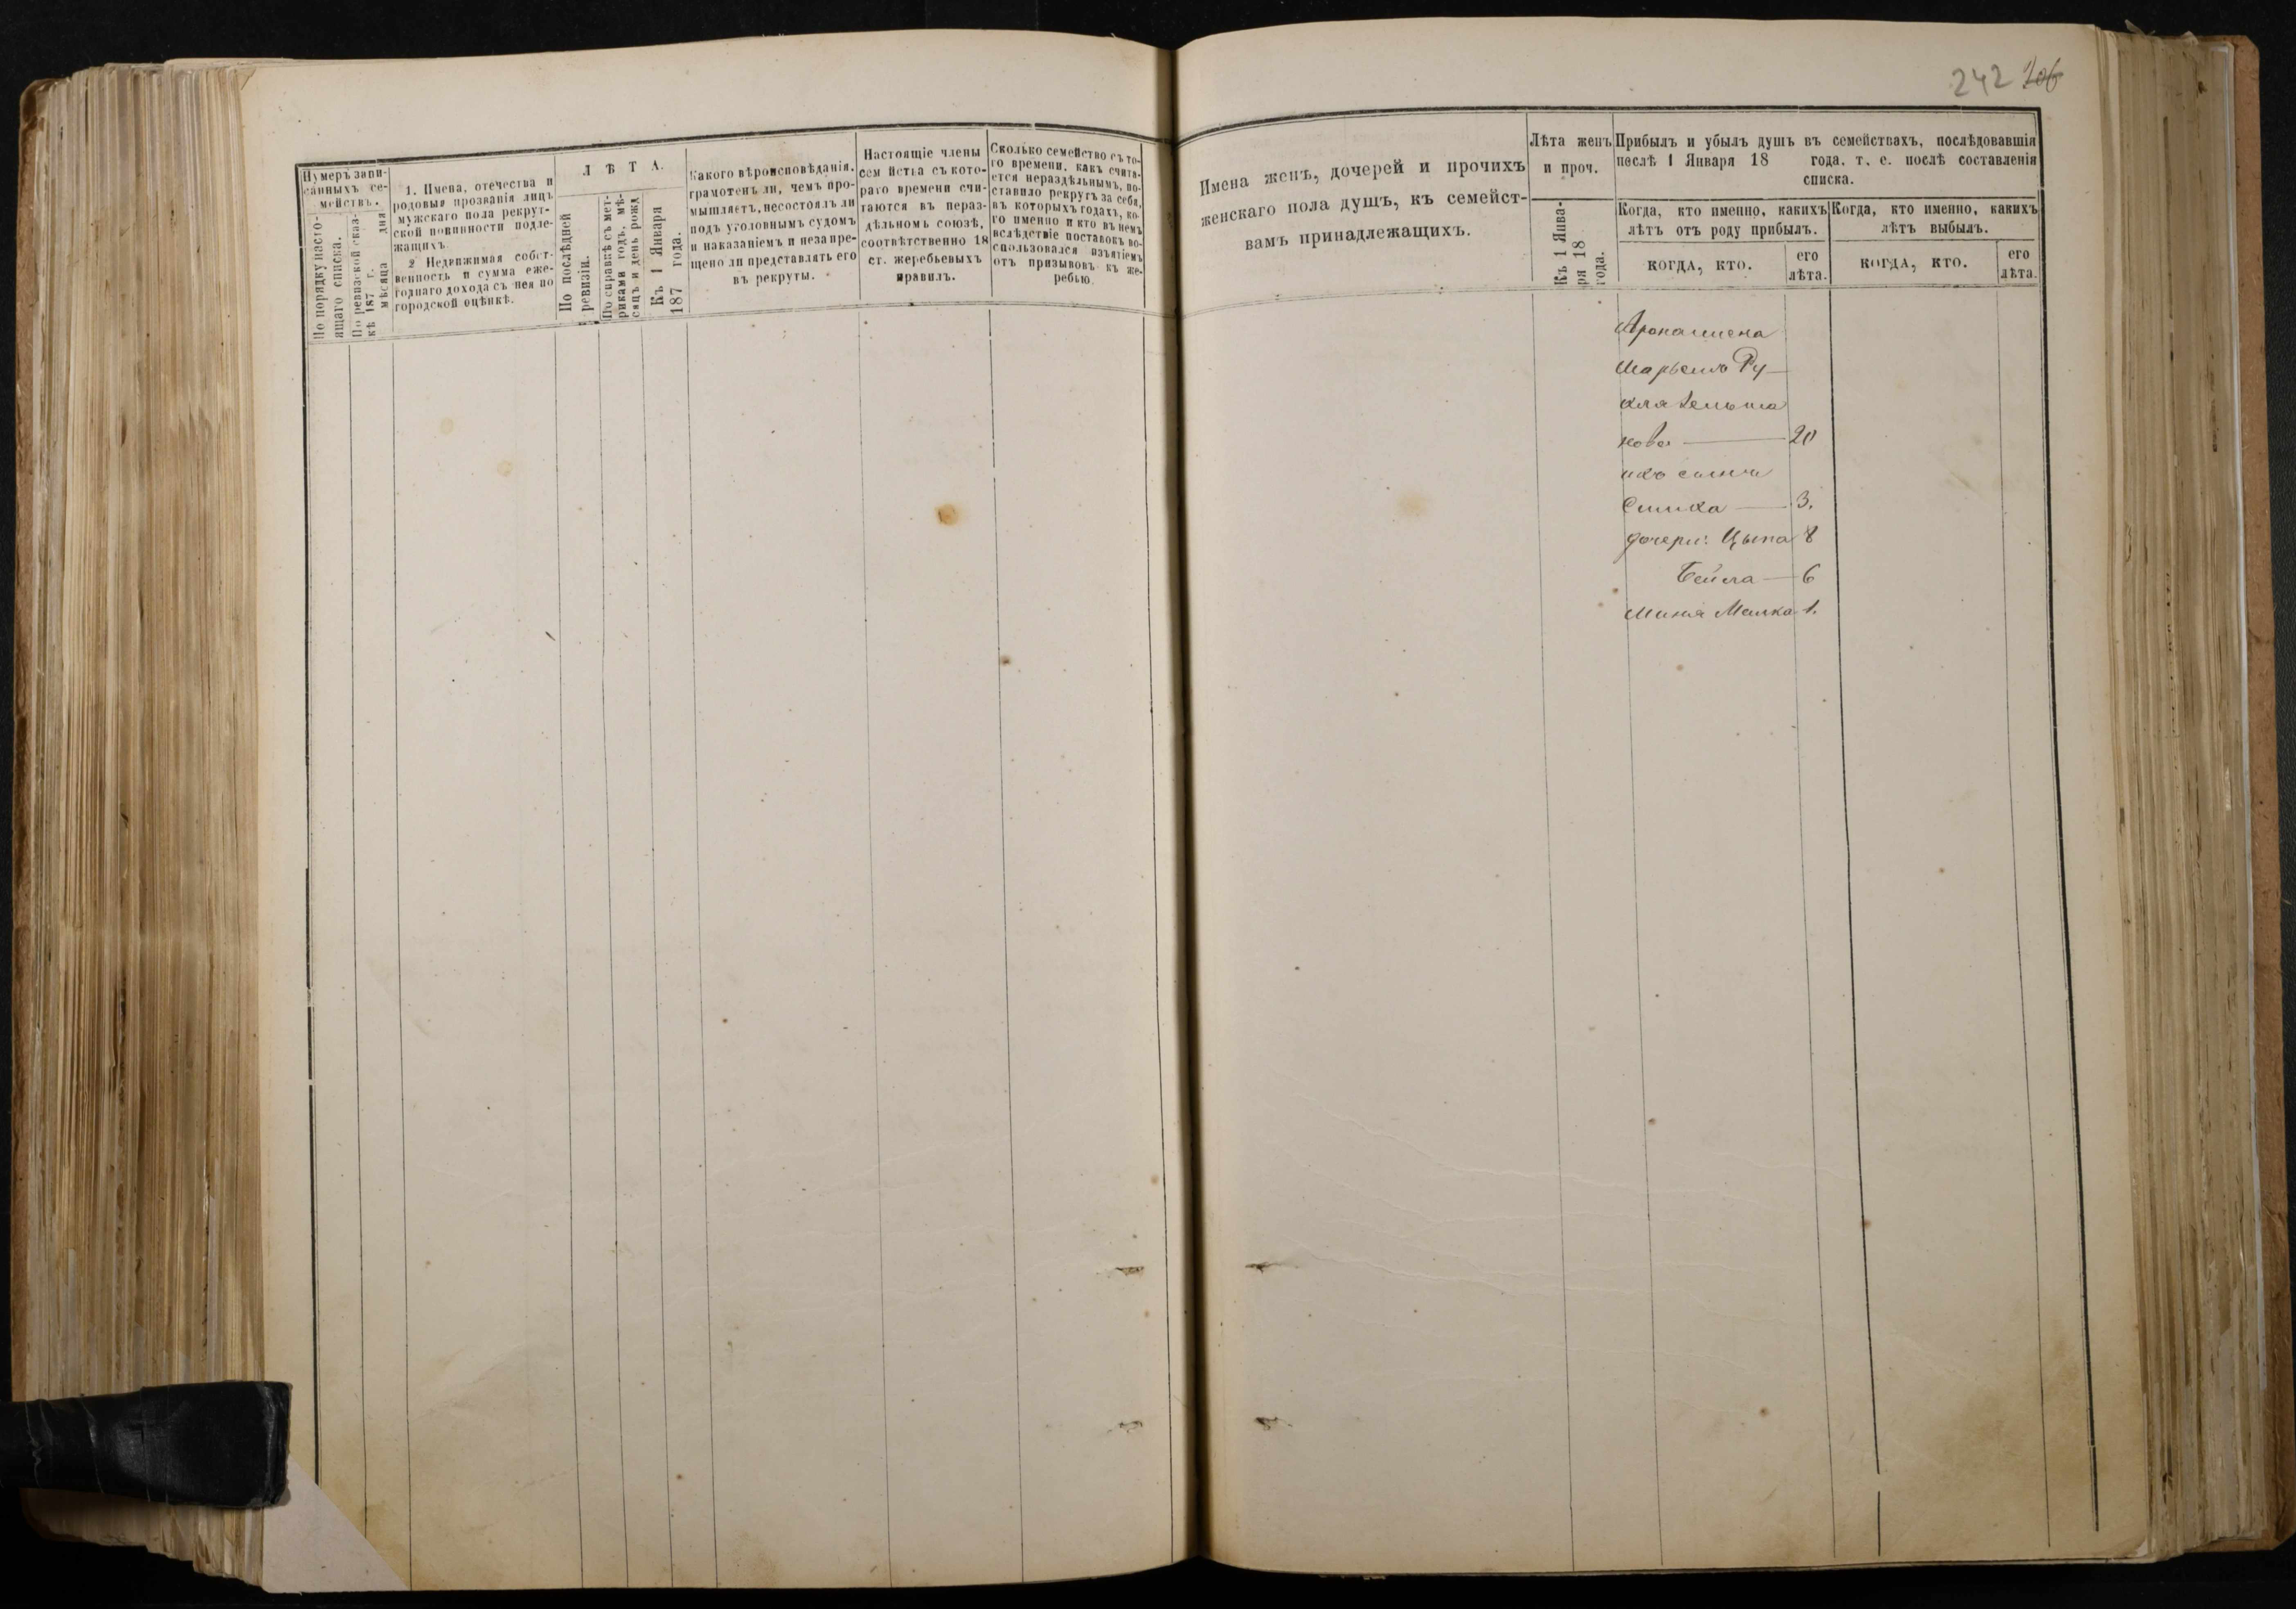 242 106
Нумеръ запи-
санныхъ се-
мействъ.
По порядку насто-
ящаго списка.
По ревизской сказ-
кѣ 187 г.
мѣсяца дня
1. Имена, отечества и
родовыя прозванія лицъ
мужскаго пола рекрут-
ской повинности подле-
жащихъ.
2 Недвижимая собст-
венность и сумма еже-
годнаго дохода съ нея по
городской оцѣнкѣ.
ЛѢТА.
По послѣдней
ревизіи.
По справкѣ съ мет-
риками годъ, мѣ-
сяцъ и день рожд
Къ 1 Января
187 года.
Какого вѣроисповѣданія.
грамотенъ ли, чѣмъ про-
мышляетъ, несостоялъ ли
подъ уголовнымъ судомъ
и наказаніемъ и незапре-
щено ли представлять его
въ рекруты.
Настоящіе члены
сем йства съ кото-
раго времени счи-
таются въ нераз-
дѣльномъ союзѣ,
соотвѣтственно 18
ст. жеребьевыхъ
правилъ.
Сколько семейство съ то-
го времени, какъ счита-
ется нераздѣльнымъ, по-
ставило рекрутъ за себя,
въ которыхъ годахъ, ко-
го именно и кто въ немъ
вслѣдствіе поставокъ во-
спользовался изъятіемъ
отъ призывовъ къ же-
ребью.
Имена женъ, дочерей и прочихъ
женскаго пола душъ, къ семейст-
вамъ принадлежащихъ.
Лѣта женъ
и проч.
Къ 1 Янва-
ря 18
года.
Прибылъ и убылъ душъ въ семействахъ, послѣдовавшія
послѣ 1 Января 18 года, т. е. послѣ составленія
списка.
Когда, кто именно, какихъ
лѣтъ отъ роду прибылъ.
КОГДА, КТО.
его
лѣта.
Когда, кто именно, какихъ
лѣтъ выбылъ.
КОГДА, КТО.
его
лѣта.
Ру-
нова 20
ихъ сынъ
Симха 3.
дочери: Цыпа 8
Бейла 6
Миня Малка 1.